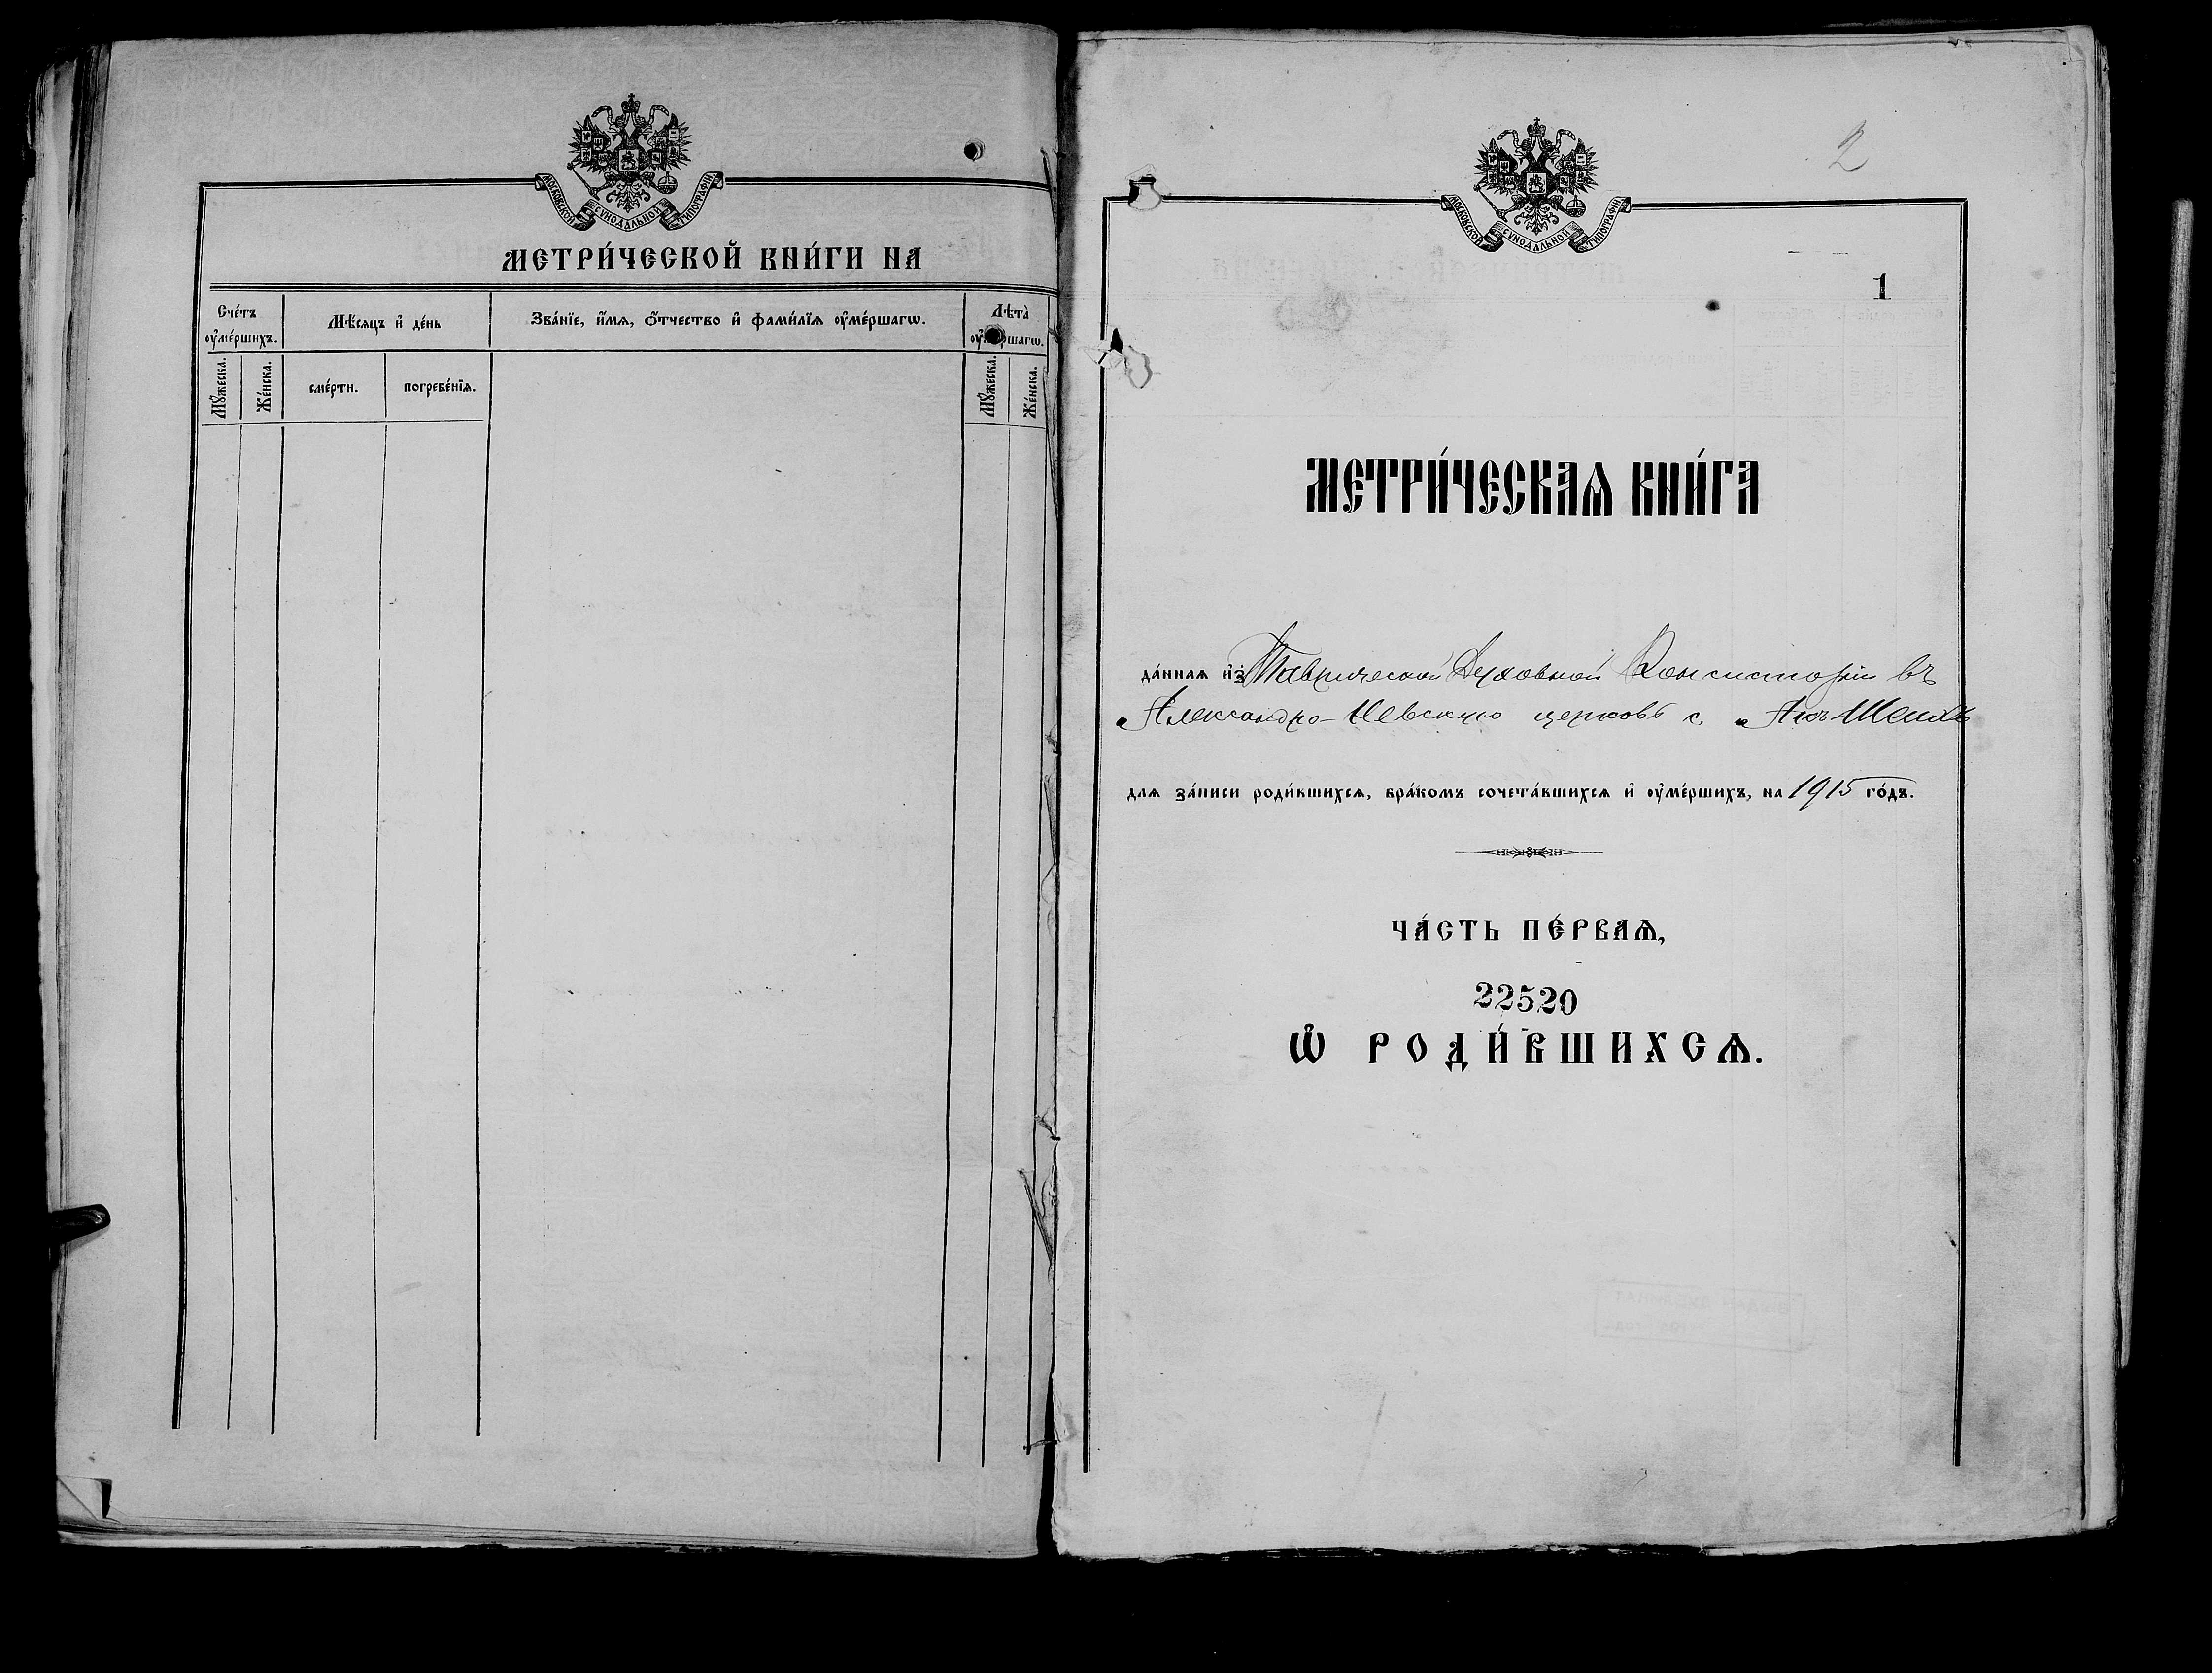 МОСКОВСКОЙ СѴНОДАЛЬНОЙ ТИПОГРАФІИ
МЕТРИ́ЧЕСКОЙ КНИ́ГИ НА
Сче́тъ ᲂу҆ме́ршихъ.
Мѣ́сяцъ и҆ де́нь
Зва́нїе, и҆́мѧ, ѻ҆́тчество и҆ фами́лїѧ ᲂу҆ме́ршагѡ.
Лѣ́та̀ ᲂу҆ме́ршагѡ.
Мꙋ́жеска.
Же́нска.
сме́рти.
погребе́нїѧ.
Мꙋ́жеска.
Же́нска.
2
МОСКОВСКОЙ СѴНОДАЛЬНОЙ ТИПОГРАФІИ
1
МЕТРИ́ЧЕСКАѦ КНИ́ГА
да́ннаѧ и҆з̾ Таврической Духовной Консисторіи въ
Александро-Невскую церковь с. Акъ-Шеихъ
для за́писи роди́вшихсѧ, бра́комъ сочета́вшихсѧ и҆ ᲂу҆ме́ршихъ, на 1915 го́дъ.
ЧА́СТЬ ПЕ́РВАѦ,
22520
Ѡ҆ РОДИ́ВШИХСѦ.